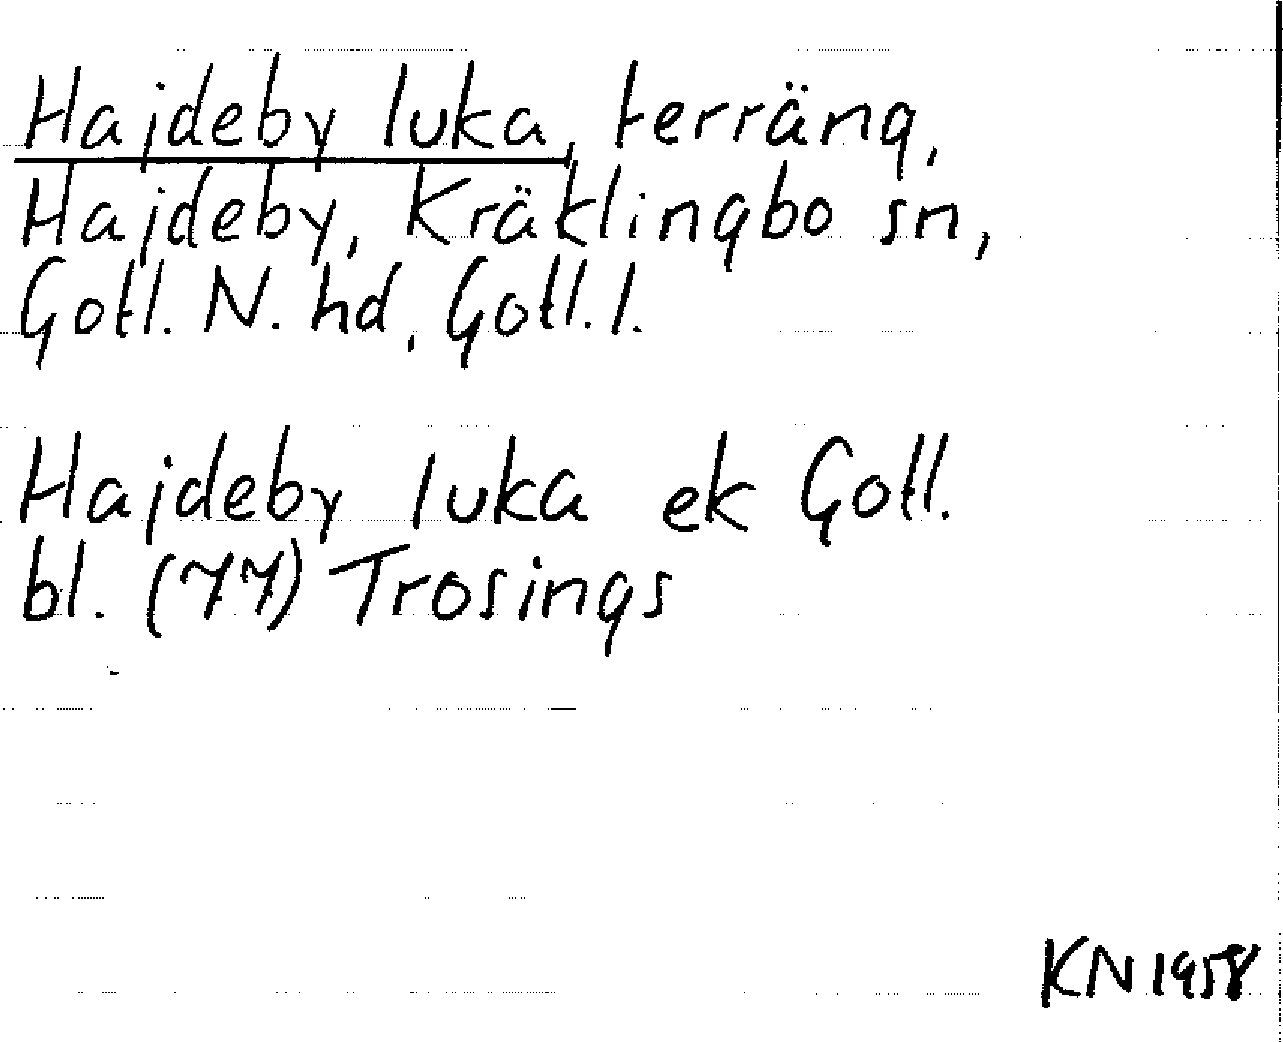 Hajdeby luka, terräng,
Hajdeby, Kräklingbo sn,
Gotl. N. hd, Gotl. l.
Hajdeby luka ek Gotl.
bl. (77) Trosings
KN 1958